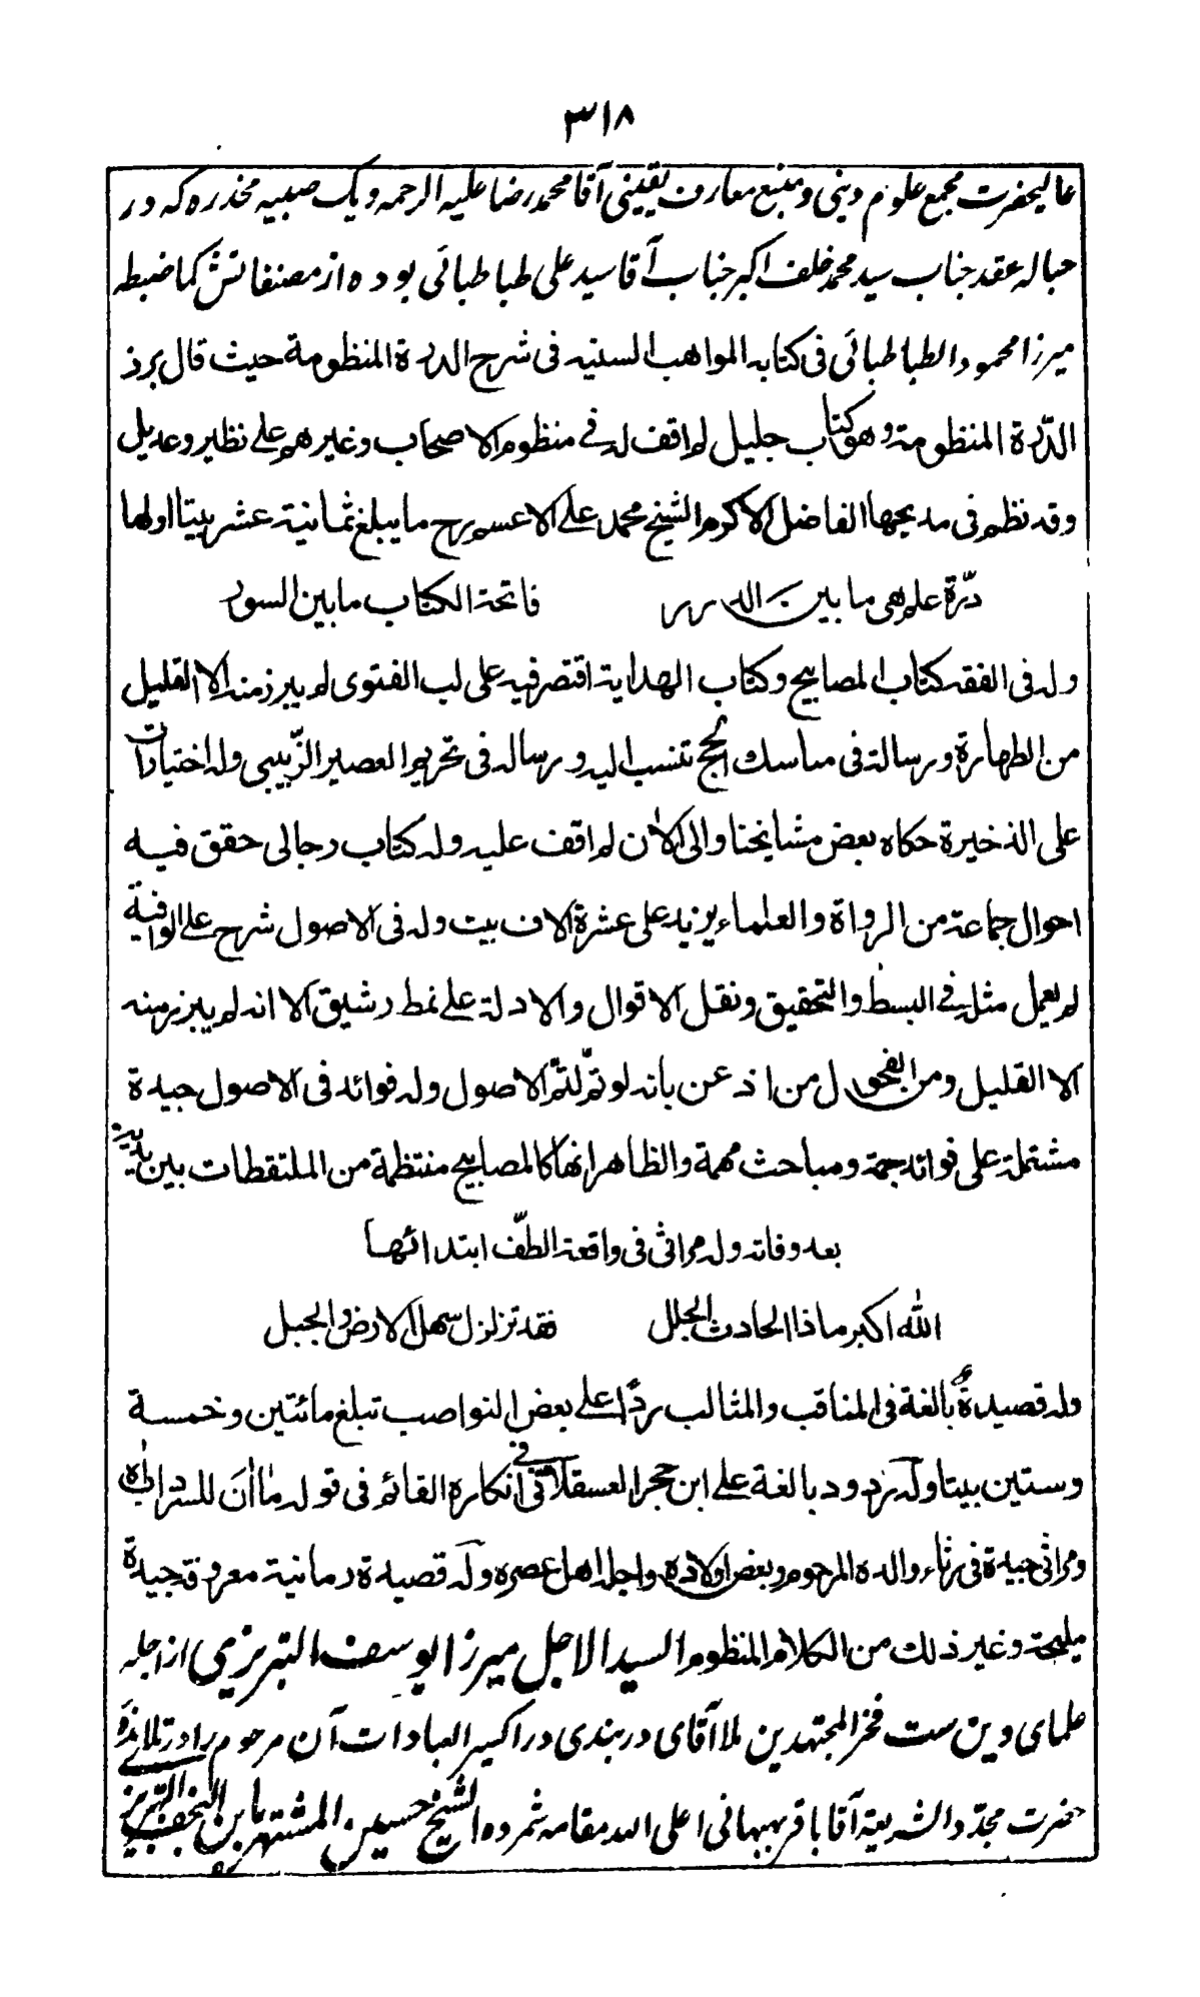 ۳۱۸
عالیحضرت مجمع علوم دینی و منبع معارف یقینی آقا محمد رضا علیه الرحمه و یک صبیه مخدره که در
حباله عقد جناب سید محمد خلف اکبر جناب آقا سید علی طباطبائی بوده از مصنفاتش کما ضبطه
میرزا محمود الطباطبائی فی کتابه المواهب السنیه فی شرح الدرة المنظومة حیث قال برز
الدّرة المنظومة و هو کتاب جلیل لم اقف له فی منظوم الاصحاب و غیرهم علی نظیر و عدیل
وقد نظم فی مدیحها الفاضل الاکرم الشیخ محمد علی الاعسم رح ما یبلغ ثمانیة عشر بیتا اولها
درّة علم هی ما بین الدرر فاتحة الکتاب ما بین السور
وله فی الفقه کتاب المصابیح و کتاب الهدایة اقتصر فیه علی لب الفتوی لم یبرز منه الا القلیل
من الطهارة و رسالة فی مناسک الحج تنسب الیه و رساله فی تحریم العصیر الزّبیبی وله اختیارات
علی الذخیرة حکاه بعض مشایخنا والی الان لم اقف علیه وله کتاب رجالی حقق فیه
احوال جماعة من الرواة والعلماء یزید علی عشرة الاف بیت وله فی الاصول شرح علی الوافیة
لم یعمل مثله فی البسط والتحقیق ونقل الاقوال والادلة علی نمط رشیق الا انه لم یبرز منه
الا القلیل ومن الفحول من اذعن بانه لو تمّ لتمّ الاصول وله فوائد فی الاصول جیدة
مشتملة علی فوائد جمة و مباحث مهمة والظاهر انها کالمصابیح منتظمة من الملتقطات بین یدیه
بعد وفاته وله مراثی فی واقعة الطّف ابتدائها
الله اکبر ماذا الحادث الجلل فقد تزلزل سهل الارض والجبل
وله قصیدة بالغة فی المناقب والمثالب ردّا علی بعض النواصب تبلغ مائتین و خمسة
وستین بیتا وله ردود بالغة علی ابن حجر العسقلانی فی انکاره القائم فی قوله ما ان للسرداب اه
و مراثی جیدة فی رثاء والده المرحوم و بعض اولاده واجله اهل عصره وله قصیدة رمانیة معروفة جیدة
ملیحة و غیر ذلک من الکلام المنظوم السید الاجل میرزا یوسف التبریزی از اجله
علمای دین ست فخر المجتهدین ملا آقای دربندی در اکسیر العبادات آن مرحوم را در تلامذه
حضرت مجدّد الشریعة آقا باقر بهبهانی اعلی الله مقامه شمرده الشیخ حسین المشتهر بابن النجف التبریزی